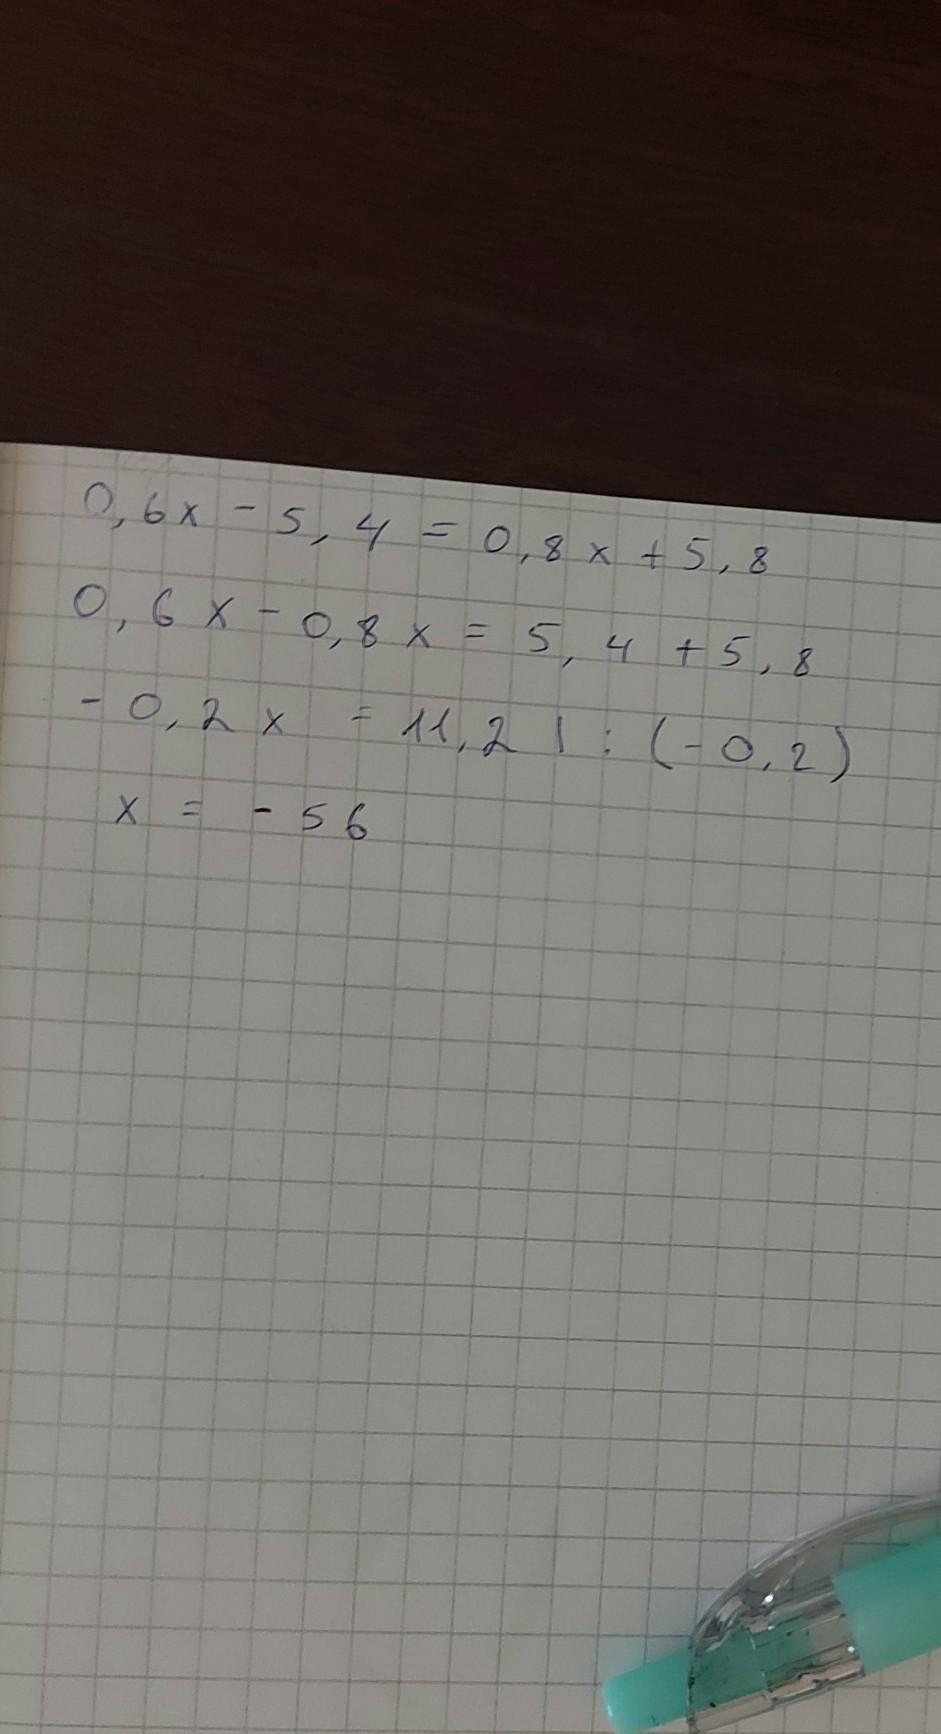 0,6x - 5,4 = 0,8x + 5,8
0,6x - 0,8x = 5,4 + 5,8
- 0,2x = 11,2 | : (-0,2)
x = - 56